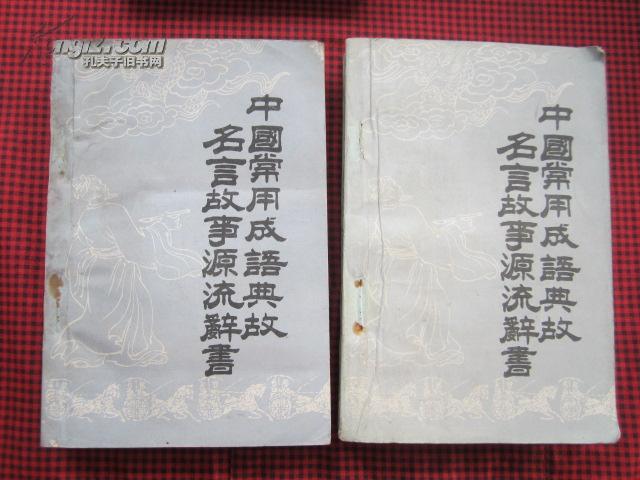 kongfz.com
孔夫子旧书网
中國常用成語典故
名言故事源流辭書
中國常用成語典故
名言故事源流辭書